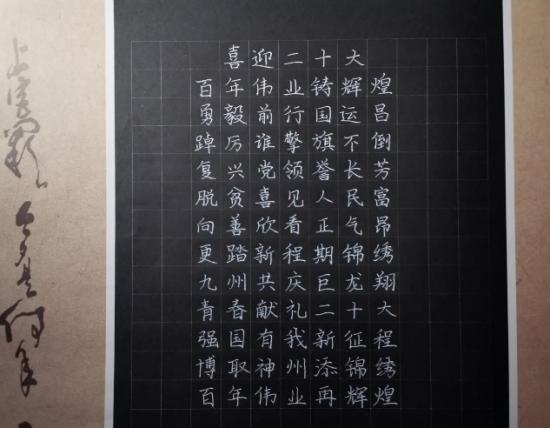 上宫阙 今夕是何年
喜迎二十大
百年伟业铸辉煌
勇毅前行国运昌
踔厉谁擎旗不倒
复兴党领誉长芳
脱贫喜见人民富
向善欣看正气昂
更踏新程期锦绣
九州共庆巨龙翔
青春献礼二十大
强国有我新征程
博取神州添锦绣
百年伟业再辉煌